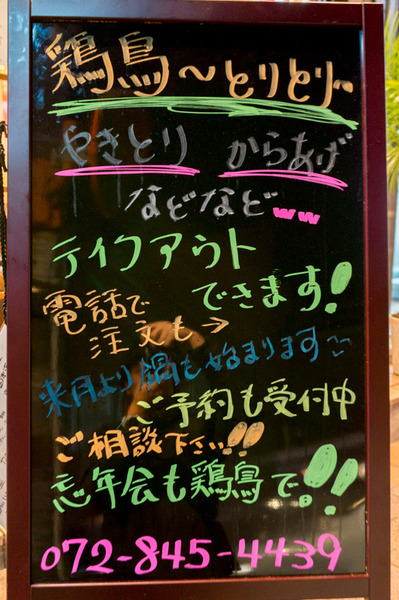 鶏鳥〜とりとり〜
やきとり からあげ
などなどww
テイクアウト
できます!
電話で
注文も→
来月より鍋も始まります〜
ご予約も受付中
ご相談下さい!!
忘年会も鶏鳥で!!
072-845-4439